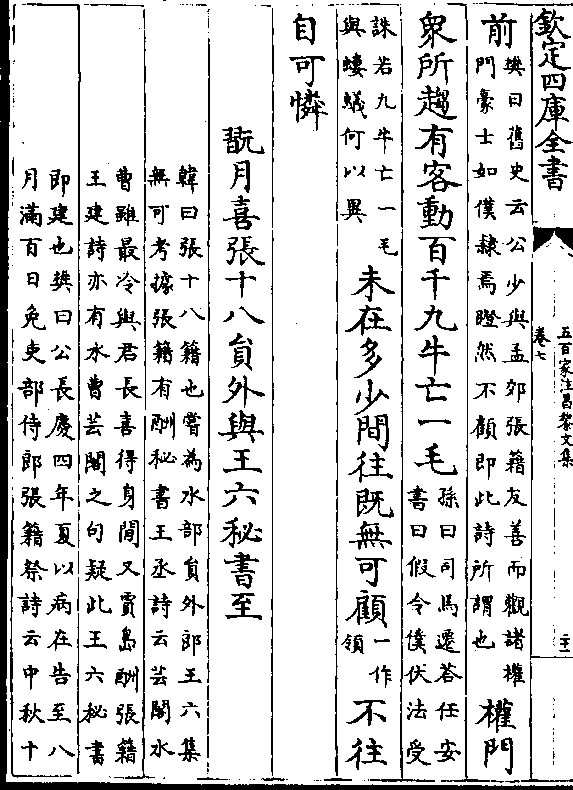 欽定四庫全書
五百家注昌黎文集
卷七
二十一
前
樊曰舊史云公少與孟郊張籍友善而觀諸權
門豪士如僕隸焉瞪然不顧即此詩所謂也
權門
衆所趨有客動百千九牛亡一毛
孫曰司馬遷荅任安
書曰假令僕伏法受
誅若九牛亡一毛
與螻蟻何以異
未在多少間往既無可顧
一作
領
不往
自可憐
翫月喜張十八員外與王六秘書至
韓曰張十八籍也嘗為水部員外郎王六集
無可考據張籍有酬秘書王丞詩云芸閣水
曹雖最冷與君長喜得身閒又賈島酬張籍
王建詩亦有水曹芸閣之句疑此王六秘書
即建也樊曰公長慶四年夏以病在告至八
月滿百日免吏部侍郎張籍祭詩云中秋十